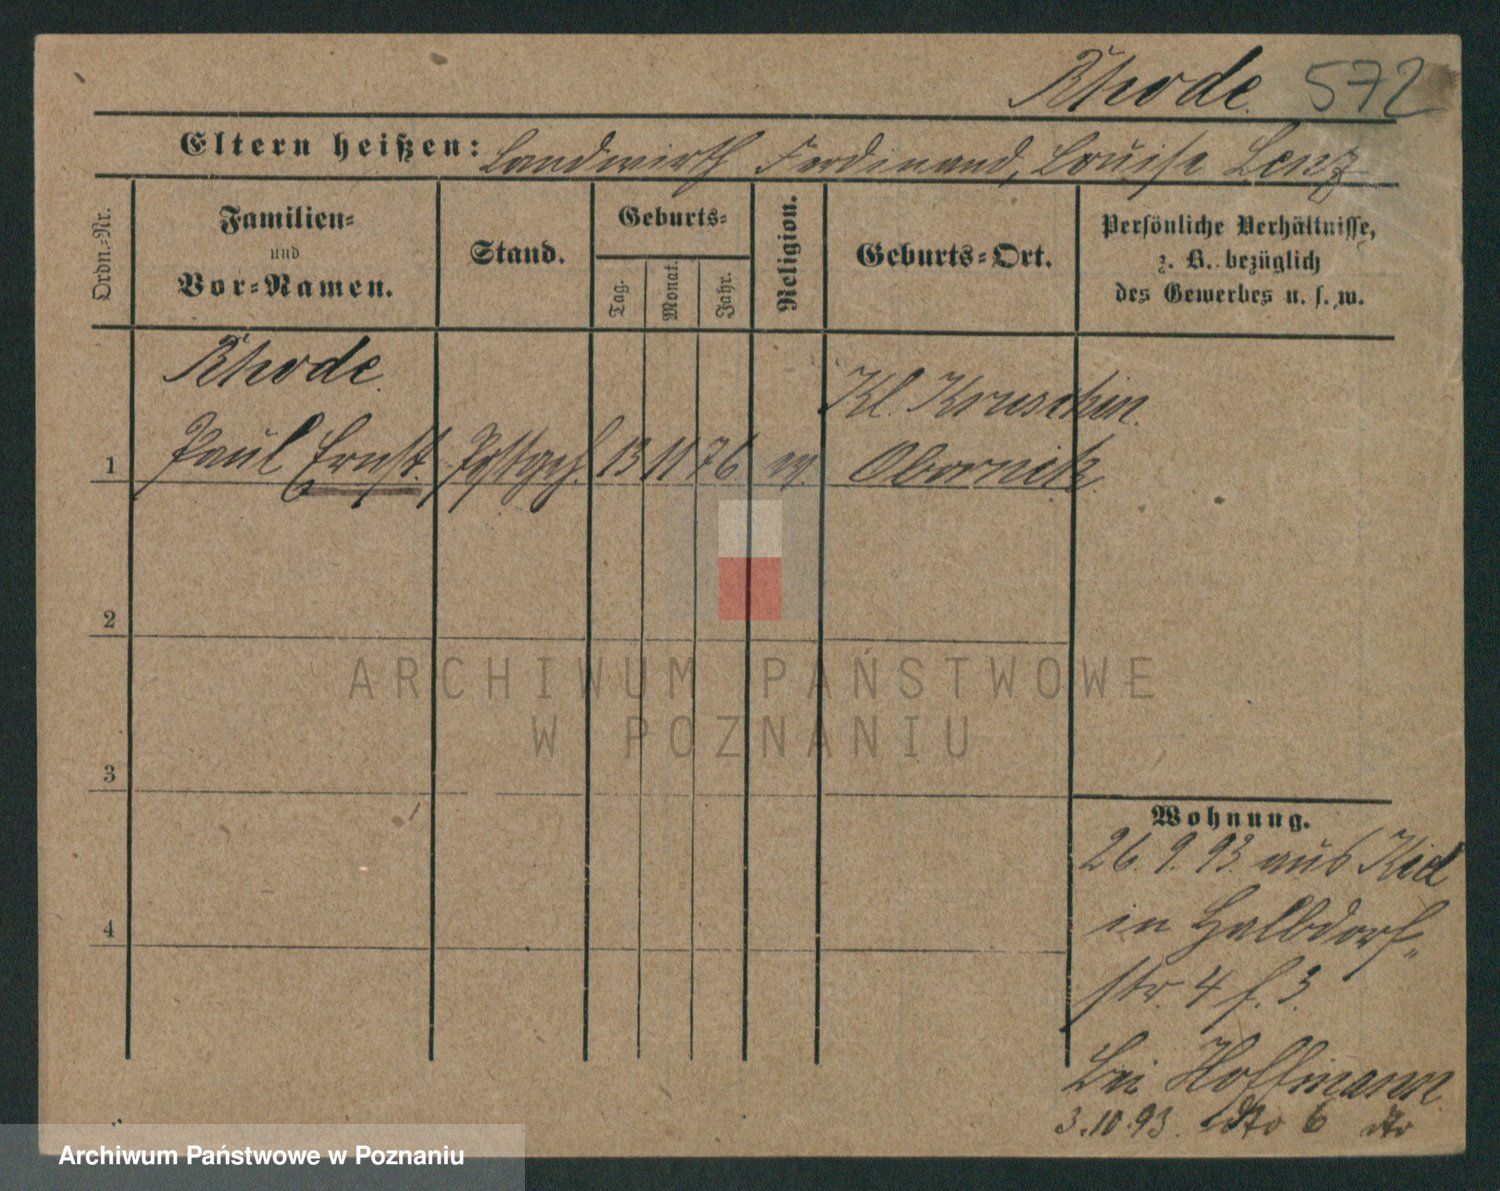 Rhode. 572
Eltern heißen: Landwirth Ferdinand, Louise Lenz
Ordn.-Nr.
Familien-
und
Vor-Namen.
Stand.
Geburts-
Tag.
Monat.
Jahr.
Religion.
Geburts-Ort.
Persönliche Verhältnisse,
z. B. bezüglich
des Gewerbes u. s. w.
Rhode.
Kl. Kruschin.
1 Paul Ernst. Postgeh. 13 11 76 ev. Obornik.
2
ARCHIWUM PAŃSTWOWE
W POZNANIU
3
Wohnung.
26. 9. 93. aus
4
in Halbdorf-
str. 4 f. 3
bei Hoffmann
3.10.93. dto 6 dto
Archiwum Państwowe w Poznaniu